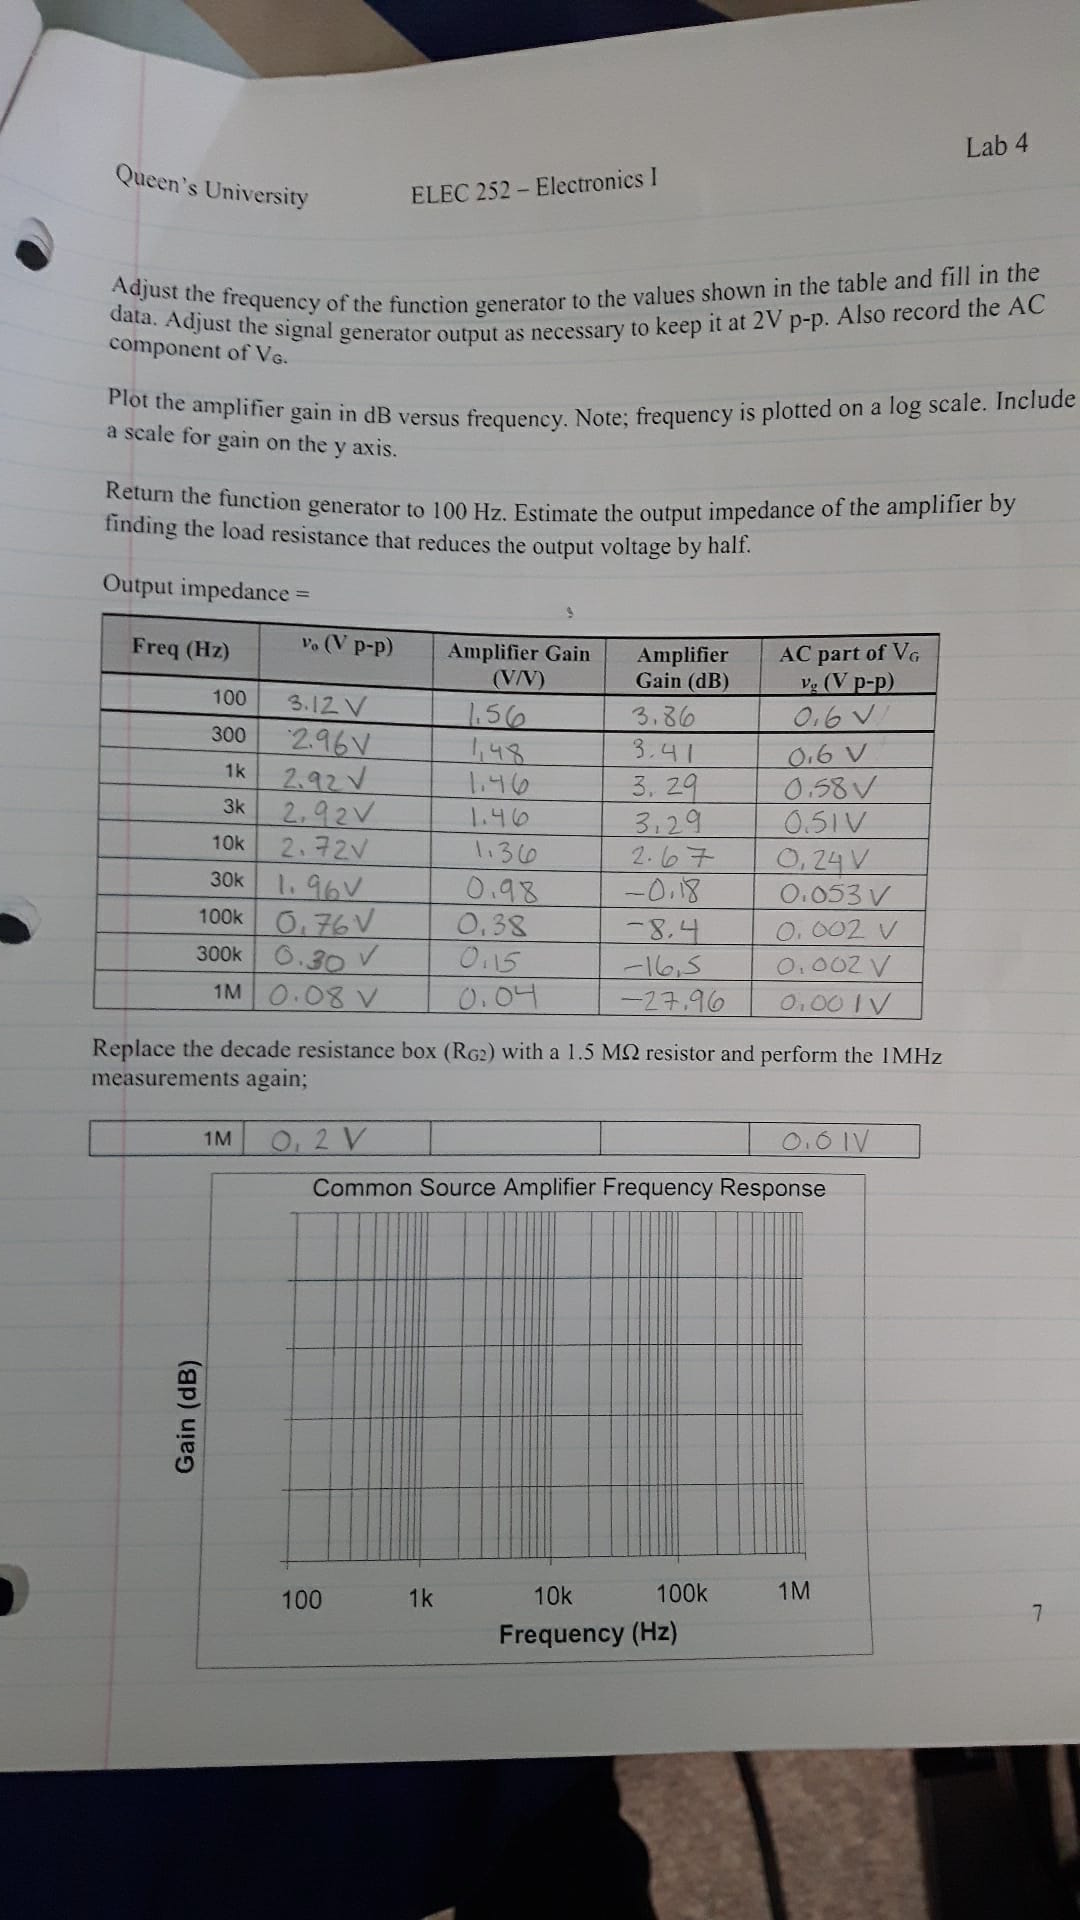 Lab 4
Queen's University ELEC 252 – Electronics I
Adjust the frequency of the function generator to the values shown in the table and fill in the
data. Adjust the signal generator output as necessary to keep it at 2V p-p. Also record the AC
component of VG.
Plot the amplifier gain in dB versus frequency. Note; frequency is plotted on a log scale. Include
a scale for gain on the y axis.
Return the function generator to 100 Hz. Estimate the output impedance of the amplifier by
finding the load resistance that reduces the output voltage by half.
Output impedance =
Freq (Hz) vo (V p-p) Amplifier Gain (V/V) Amplifier Gain (dB) AC part of VG vg (V p-p)
100 3.12 V 1.56 3.86 0.6 V
300 2.96V 1.48 3.41 0.6 V
1k 2.92 V 1.46 3.29 0.58 V
3k 2.92V 1.46 3.29 0.51V
10k 2.72V 1.36 2.67 0.24 V
30k 1.96V 0.98 -0.18 0.053 V
100k 0.76 V 0.38 -8.4 0.002 V
300k 0.30 V 0.15 -16.5 0.002 V
1M 0.08 V 0.04 -27.96 0.001V
Replace the decade resistance box (RG2) with a 1.5 MΩ resistor and perform the 1MHz
measurements again;
1M 0.2 V 0.61V
Common Source Amplifier Frequency Response
Gain (dB)
100 1k 10k 100k 1M
Frequency (Hz)
7